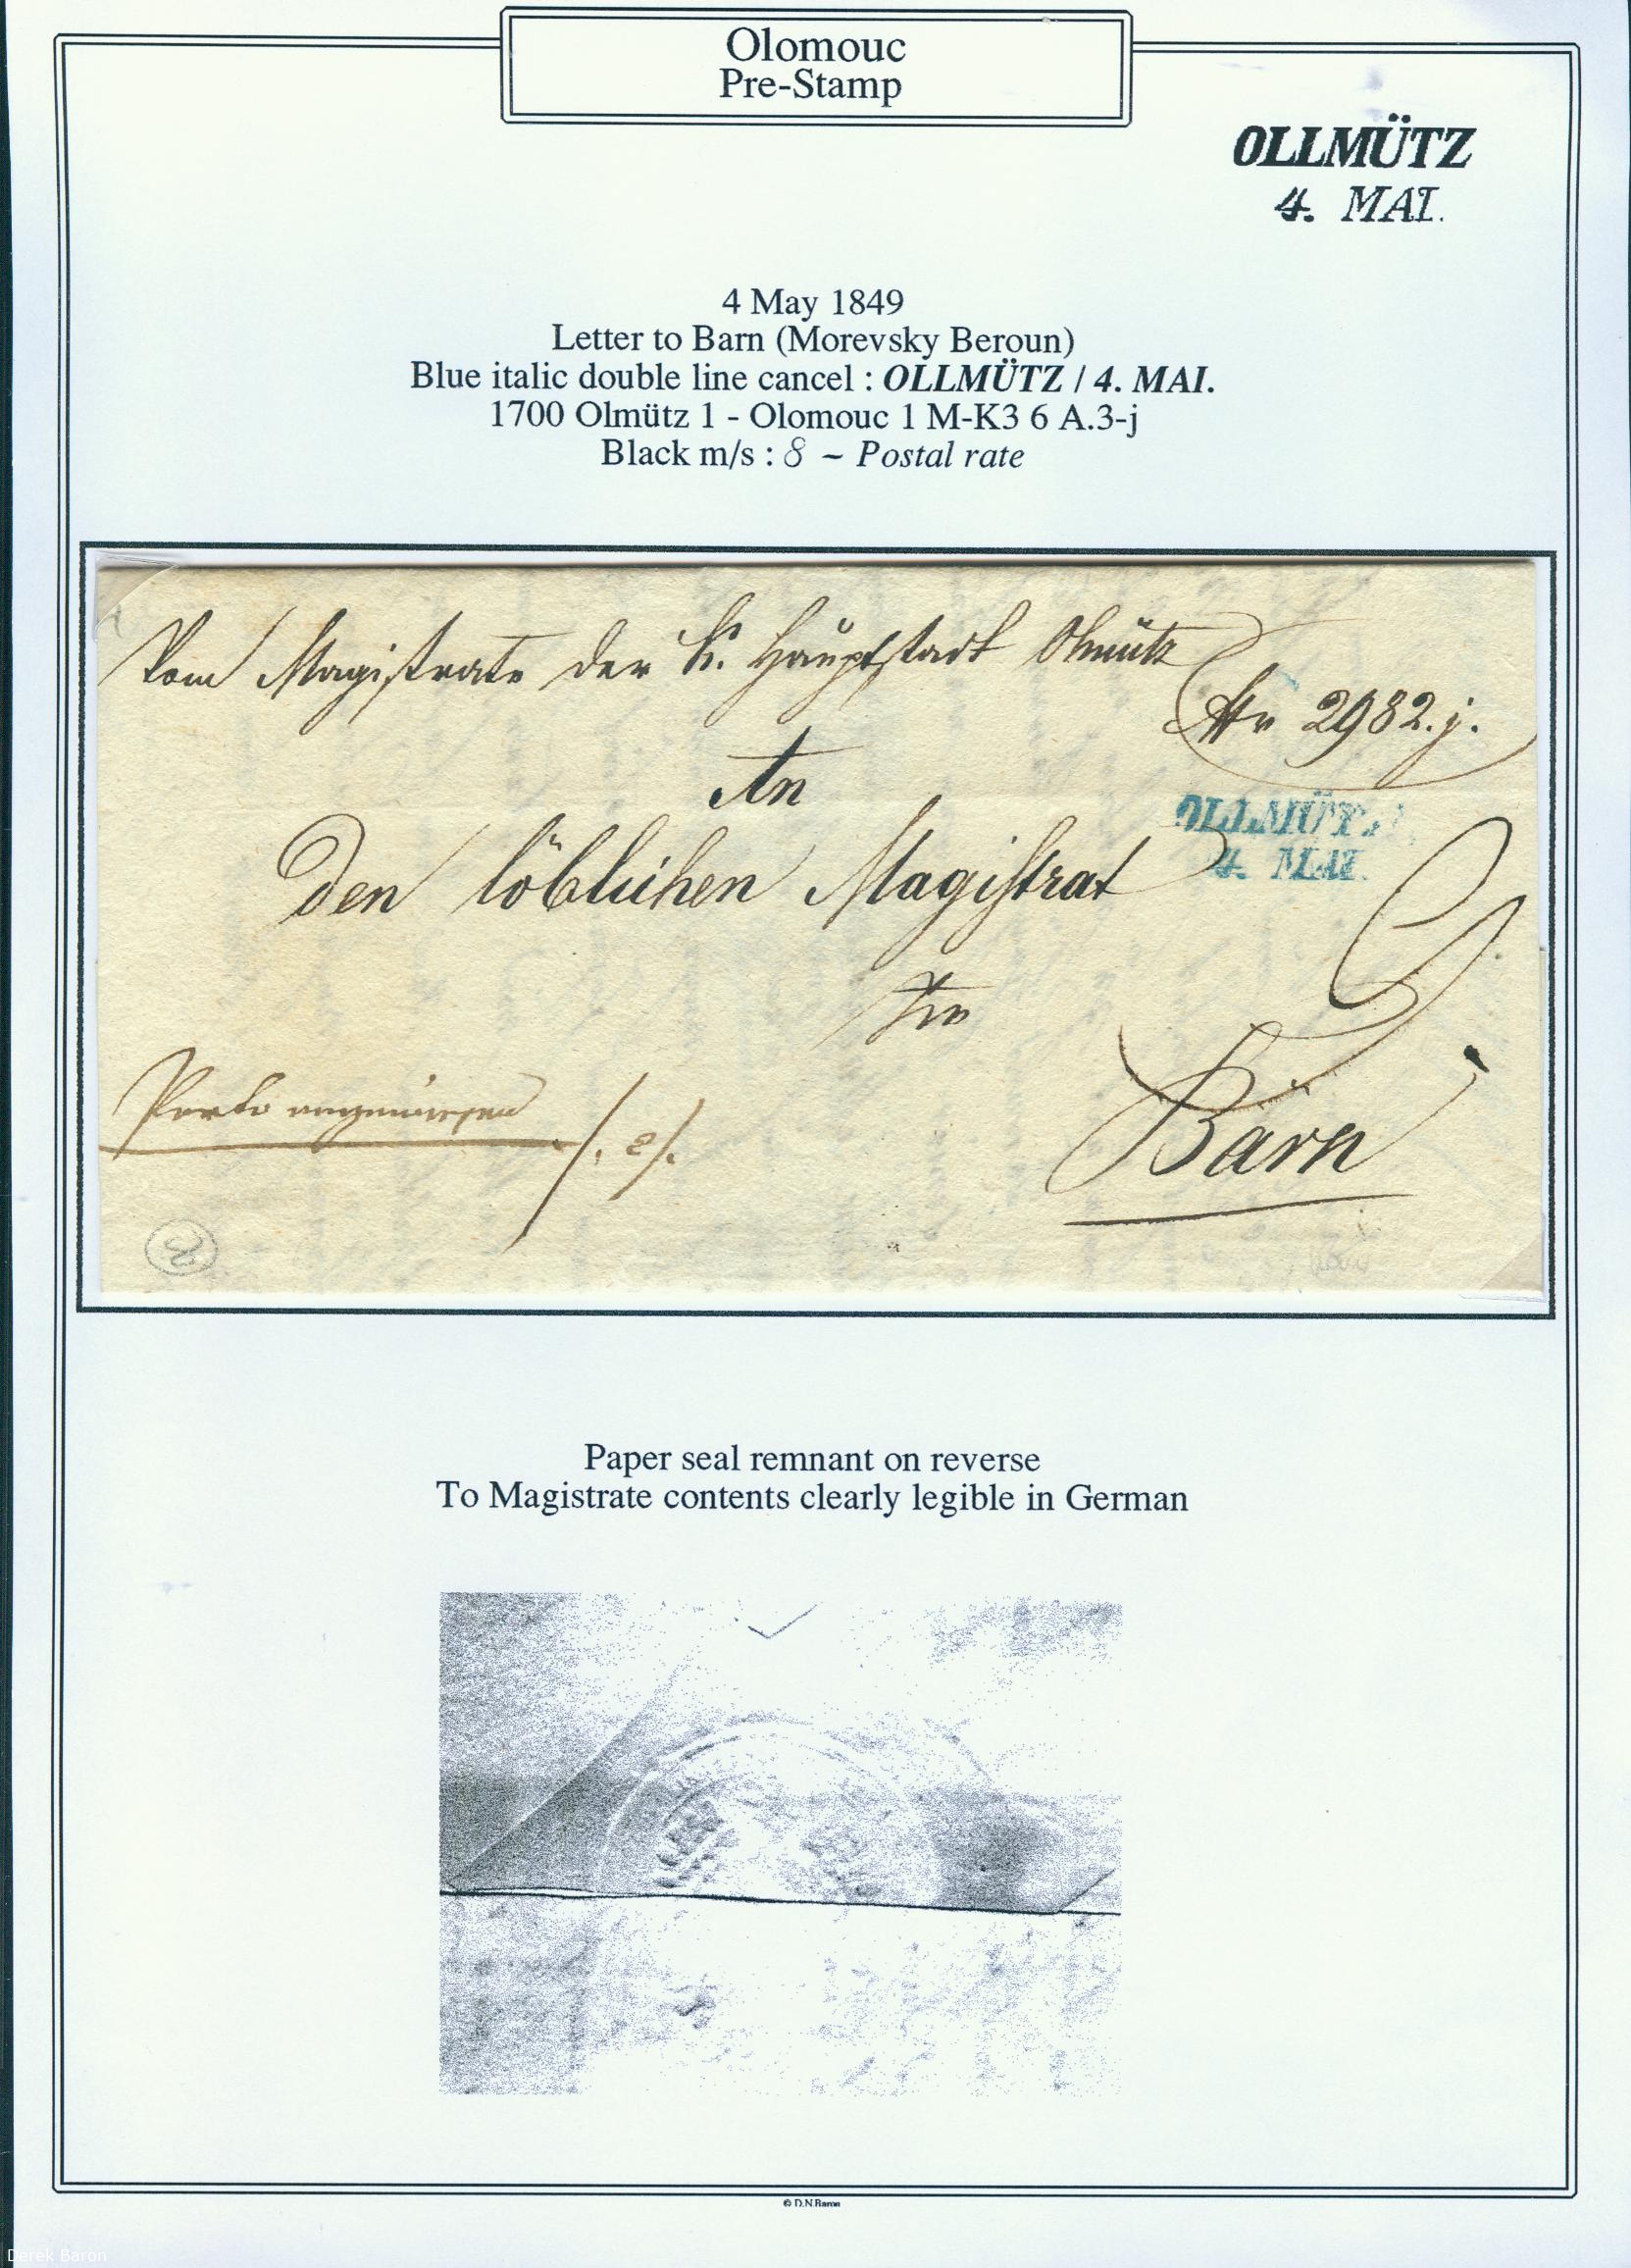 Olomouc
Pre-Stamp
OLLMÜTZ
4. MAI.
4 May 1849
Letter to Barn (Morevsky Beroun)
Blue italic double line cancel : OLLMÜTZ / 4. MAI.
1700 Olmütz 1 - Olomouc 1 M-K3 6 A.3-j
Black m/s : 8 ~ Postal rate
Vom Magistrate der K. Hauptstadt Olmütz
Nr 2982.j.
An
OLLMÜTZ
4. MAI.
Den löblichen Magistrat
zu
Porto
Bärn
Paper seal remnant on reverse
To Magistrate contents clearly legible in German
© D.N.Baron
Derek Baron